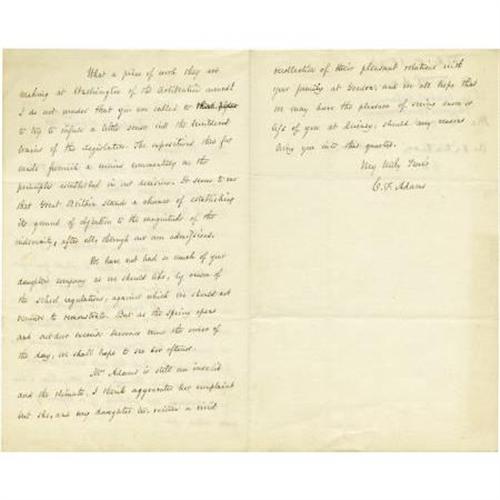 What a piece of work they are
making at Washington of the Arbitration award!
I do not wonder that you are called to
to try to infuse a little sense into the bewildered
brains of the legislators. The expositions thus far
made furnish a curious commentary on the
principles established in our decision. It seems to me
that Great Britain stands a chance of establishing
its ground of objection to the magnitude of the
indemnity, after all, through our own admissions.
We have not had so much of your
daughter's company as we should like, by reason of
the school regulations, against which we should not
venture to remonstrate. But as the Spring opens
and out door exercise becomes more the order of
the day, we shall hope to see her oftener.
Mrs Adams is still an invalid
and the climate, I think aggravates her complaint
but she, and my daughter too, retain a vivid
recollection of their pleasant relations with
your family at Geneva, and we all hope that
we may have the pleasure of seeing more or
less of you at Quincy, should any reason
bring you into that quarter.
Very truly Yours
C. F. Adams